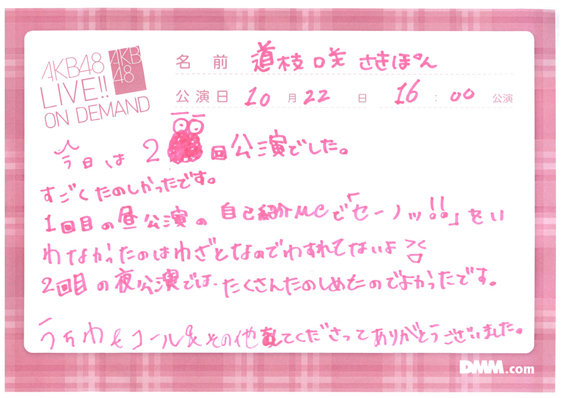 AKB48
LIVE!!
ON DEMAND
AKB
48
名前 道枝咲 さきぽん
公演日 10月22日 16:00公演
今日は2回公演でした。
すごくたのしかったです。
1回目の昼公演の自己紹介MCで「セーノッ!!」をい
わなかったのはわざとなのでわすれてないよ
2回目の夜公演では、たくさんたのしめたのでよかったです。
うちわもコール&その他 してくださってありがとうございました。
DMM.com